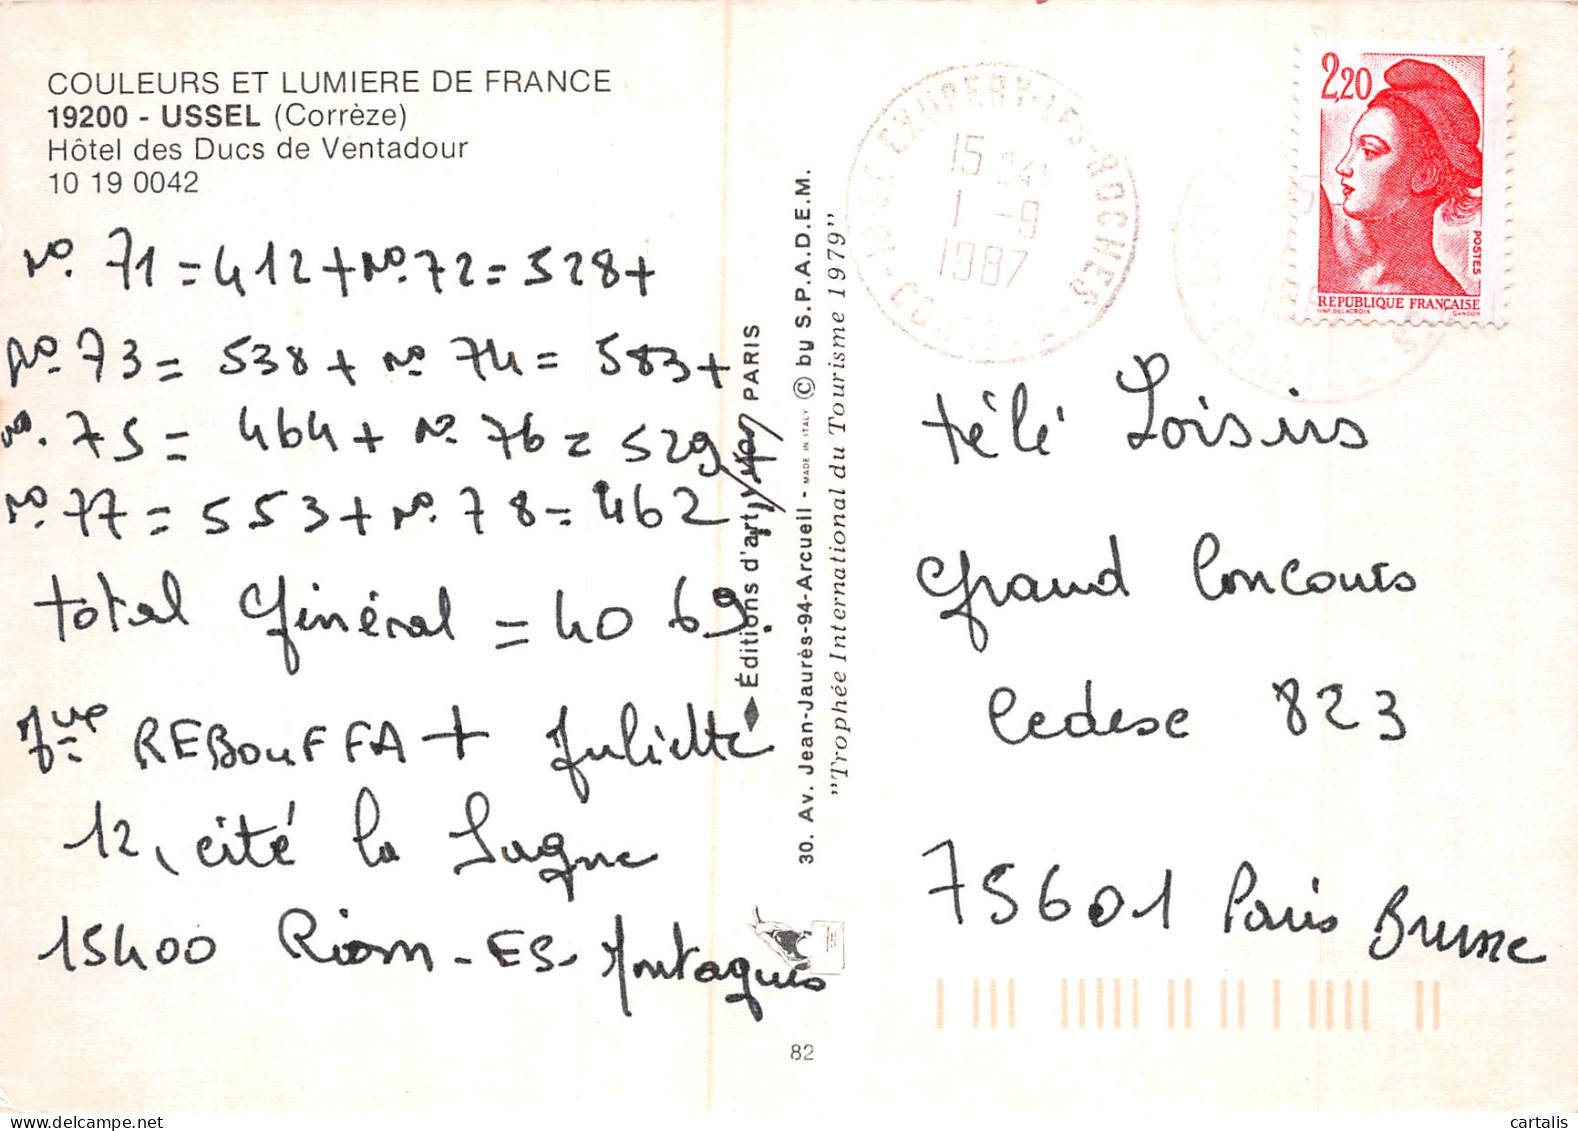 COULEURS ET LUMIERE DE FRANCE
19200 - USSEL (Corrèze)
Hôtel des Ducs de Ventadour
10 19 0042
No. 71 = 412 + No. 72 = 528 +
No 73 = 538 + No 74 = 583 +
No. 75 = 464 + No. 76 = 529
No. 77 = 553 + No. 78 = 462
total Général = 4069.
REBOUFFA + Juliette
12, cité la Sagne
15400 Riom-ES-Montagnes
Éditions d'art PARIS
30. Av. Jean-Jaurès-94-Arcueil - MADE IN ITALY © by S.P.A.D.E.M.
"Trophée International du Tourisme 1979"
82
19 ST EXUPERY-LES-ROCHES
15 H
1 -9
1987
2,20
POSTES
REPUBLIQUE FRANÇAISE
D'AP. DELACROIX GANDON
télé Loisirs
Grand Concours
Cedexe 823
75601 Paris Brune
cartalis